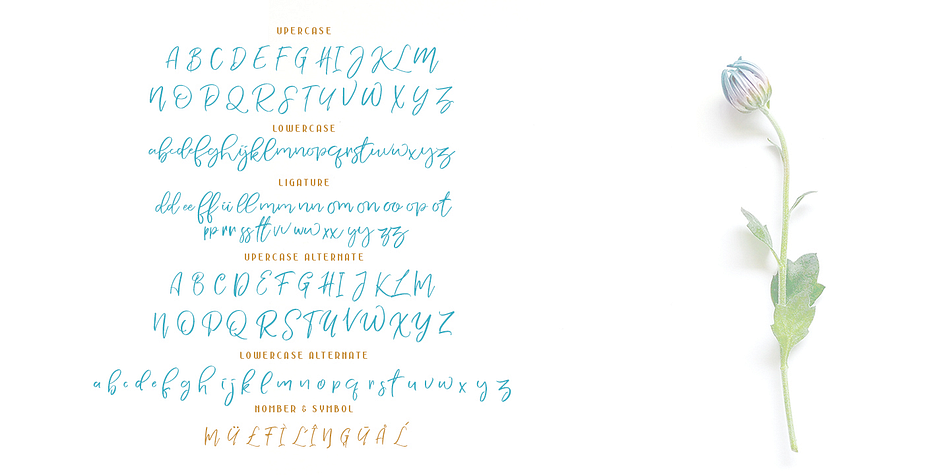 UPERCASE
A B C D E F G H I J K L M
N O P Q R S T U V W X Y Z
LOWERCASE
abcdefghijklmnopqrstuvwxyz
LIGATURE
dd ee ff ii ll mm nn om on oo op ot
pp rr ss tt vv ww xx yy zz
UPERCASE ALTERNATE
A B C D E F G H I J K L M
N O P Q R S T U V W X Y Z
LOWERCASE ALTERNATE
a b c d e f g h i j k l m n o p q r s t u v w x y z
NOMBER & SYMBOL